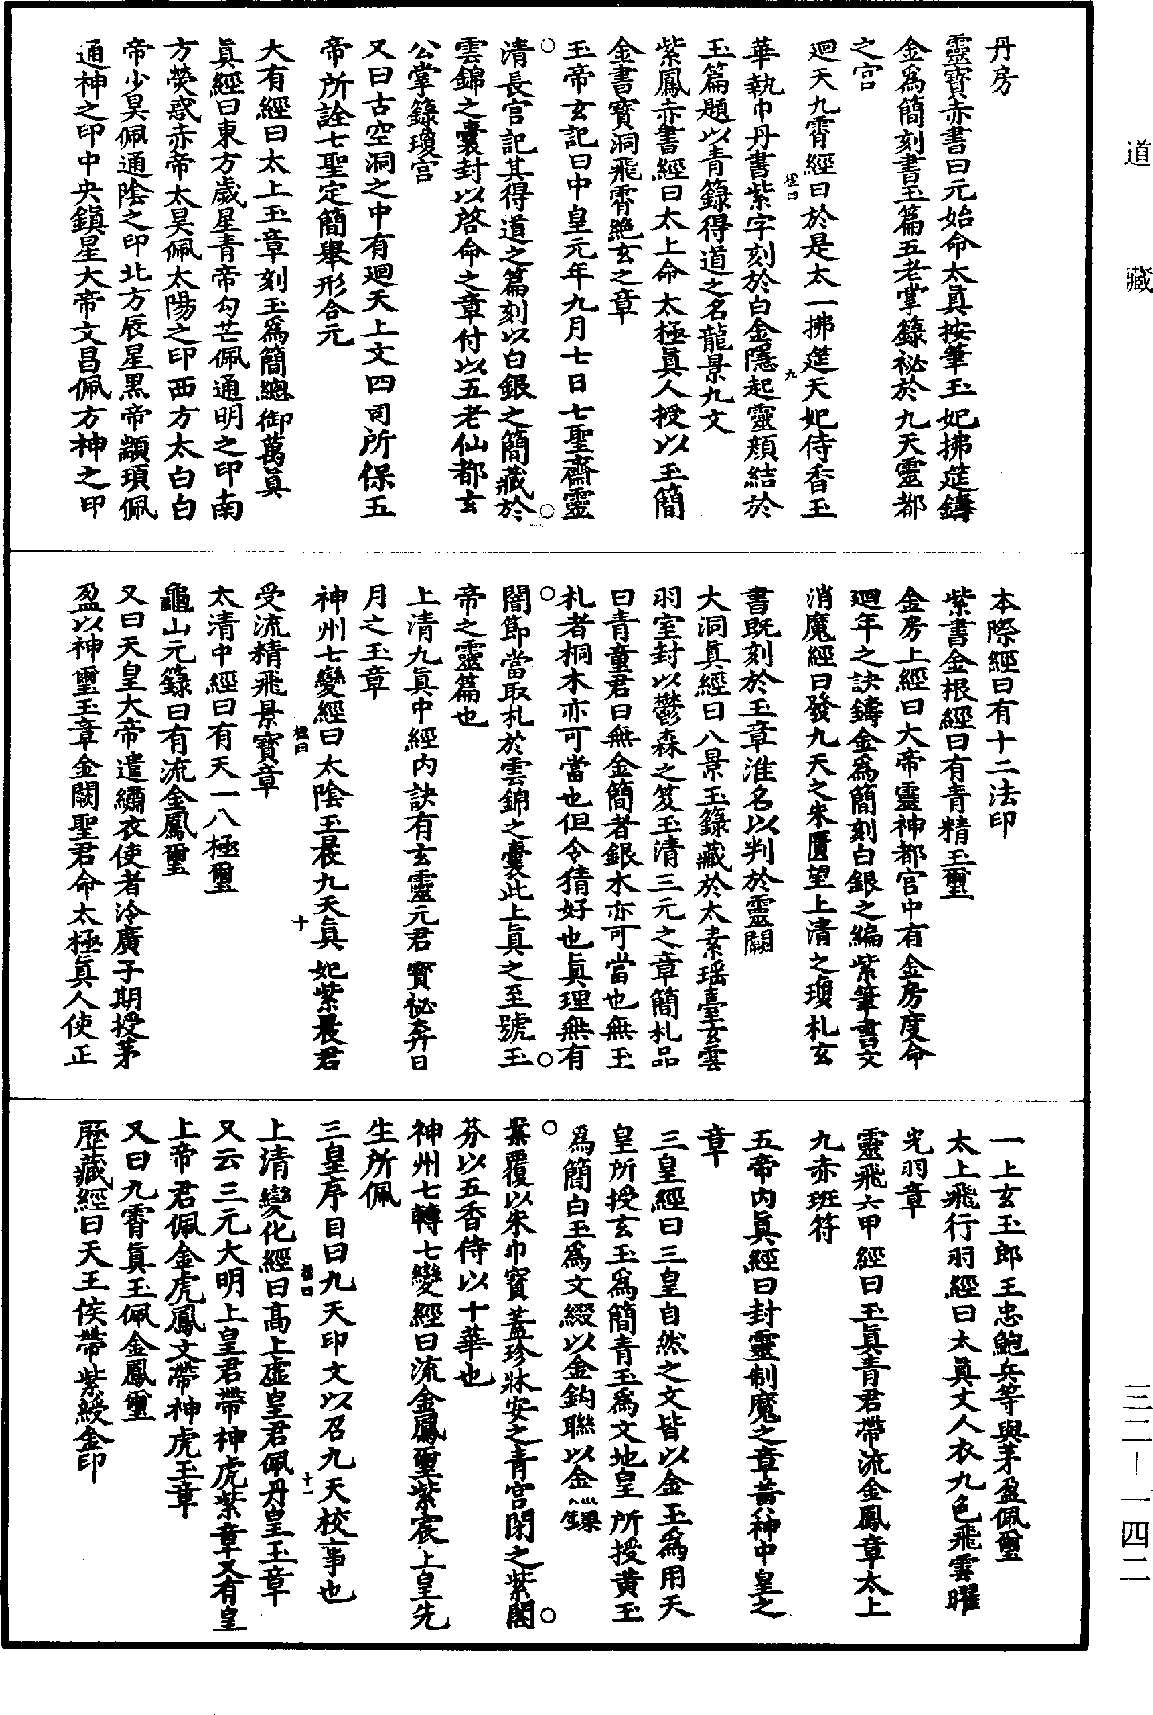 道藏
丹房
靈寶赤書曰元始命太眞按筆玉妃拂筵鑄
金爲簡刻書玉篇五老掌錄祕於九天靈都
之宮
迴天九霄經曰於是太一拂筵天妃侍香玉
華執巾丹書紫字刻於白金隱起靈顏結於
玉篇題以青籙得道之名龍景九文
紫鳳赤書經曰太上命太極眞人授以玉簡
金書寶洞飛霄絶玄之章
玉帝玄記曰中皇元年九月七日七聖齋靈
清長宮記其得道之篇刻以白銀之簡藏於
雲錦之囊封以啓命之章付以五老仙都玄
公掌錄瓊宮
又曰古空洞之中有迴天上文四司所保五
帝所詮七聖定簡舉形合元
大有經曰太上玉章刻玉爲簡總御萬眞
眞經曰東方歲星青帝勾芒佩通明之印南
方熒惑赤帝太昊佩太陽之印西方太白白
帝少昊佩通陰之印北方辰星黑帝顓頊佩
通神之印中央鎮星大帝文昌佩方神之印
本際經曰有十二法印
紫書金根經曰有青精玉璽
金房上經曰大帝靈神都宮中有金房度命
迴年之訣鑄金爲簡刻白銀之編紫筆書文
消魔經曰發九天之朱匱望上清之瓊札玄
書旣刻於玉章淮名以判於靈闕
大洞眞經曰八景玉籙藏於太素瑤臺玄雲
羽室封以鬱森之笈玉清三元之章簡札品
曰青童君曰無金簡者銀木亦可當也無玉
札者桐木亦可當也但令猜好也眞理無有
闇節當取札於雲錦之囊此上眞之至號玉
帝之靈篇也
上清九眞中經內訣有玄靈元君寶祕奔日
月之玉章
神州七變經曰太陰玉晨九天眞妃紫晨君
受流精飛景寶章
太清中經曰有天一八極璽
龜山元籙曰有流金鳳璽
又曰天皇大帝遣繡衣使者泠廣子期授茅
盈以神璽玉章金闕聖君命太極眞人使正
一上玄玉郎王忠鮑兵等與茅盈佩璽
太上飛行羽經曰太眞丈人衣九色飛雲曜
光羽章
靈飛六甲經曰玉眞青君帶流金鳳章太上
九赤班符
五帝內眞經曰封靈制魔之章黃神中皇之
章
三皇經曰三皇自然之文皆以金玉爲用天
皇所授玄玉爲簡青玉爲文地皇所授黃玉
爲簡白玉爲文綴以金鈎聯以金
覆以朱巾寶蓋珍牀安之青宮閉之紫閣
芬以五香侍以十華也
神州七轉七變經曰流金鳳璽紫宸上皇先
生所佩
三皇序目曰九天印文以召九天校事也
上清變化經曰高上虛皇君佩丹皇玉章
又云三元大明上皇君帶神虎紫章又有皇
上帝君佩金虎鳳文帶神虎玉章
又曰九霄眞玉佩金鳳璽
歷藏經曰天王侯帶紫綬金印
三二－一四二